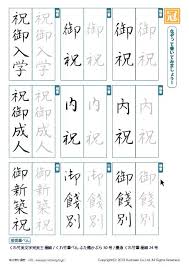 冠
なぞって書いてみましょう!
御祝
御祝
御祝
御祝
祝御入学
祝御入学
内祝
内祝
内祝
内祝
祝御成人
祝御成人
御餞別
御餞別
御餞別
御餞別
御新築祝
御新築祝
All Rights Reserved.